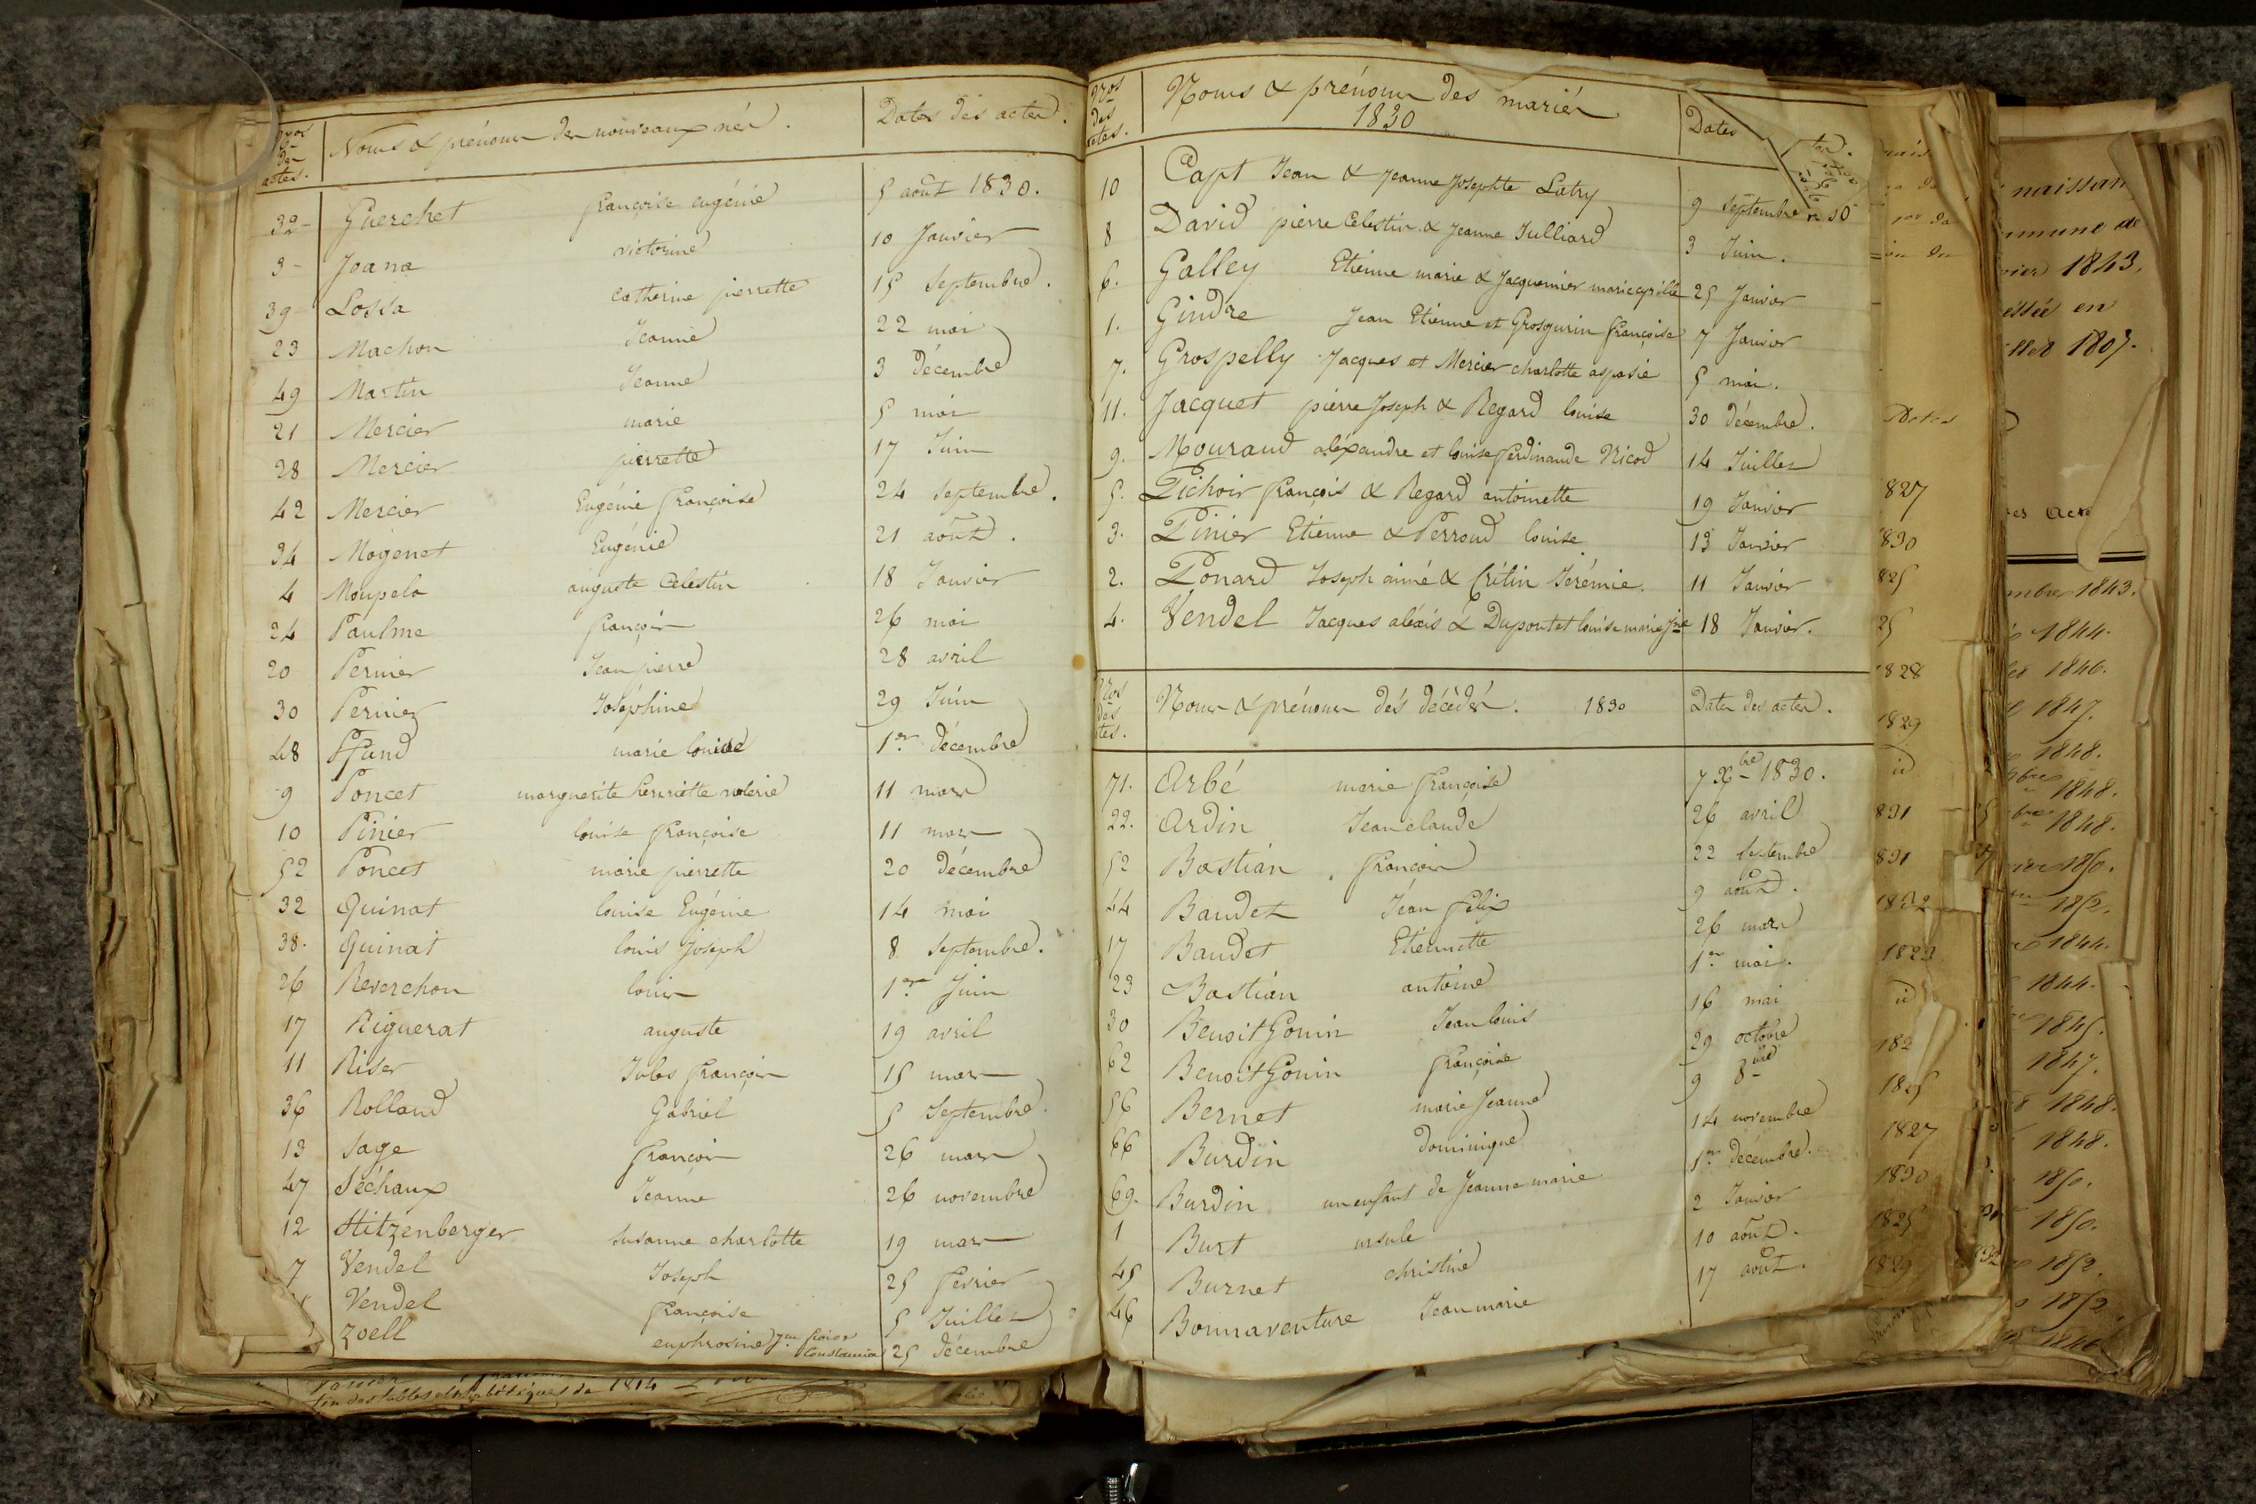 Nos des actes. Noms & prénoms des nouveaux nés. Dates des actes.
32 Guerchet françoise eugénie 5 août 1830.
3 Joana victorine 10 Janvier
39 Lossa Catherine pierrette 15 Septembre.
23 Machon Jeanne 22 mai
49 Martin Jeanne 3 décembre
21 Mercier marie 5 mai
28 Mercier pierrette 17 Juin
42 Mercier Eugénie françoise 24 Septembre.
34 Mogenet Eugénie 21 août.
4 Moupela auguste Celestin 18 Janvier
24 Paulme françois 26 mai
20 Pernier Jean pierre 28 avril
30 Pernier Joséphine 29 Juin
48 Pfund marie louise 1er décembre
9 Poncet marguerite henriette valerie 11 mars
10 Pinier louise françoise 11 mars
52 Poncet marie pierrette 20 décembre
32 Quinat louise Eugénie 14 mai
38. Quinat louis joseph 8 Septembre.
26 Reverchon louis 1er Juin
17 Riguerat auguste 19 avril
11 Riser Jules françois 15 mars
36 Rolland Gabriel 5 Septembre.
13 Sage françois 26 mars
47 Séchaux Jeanne 26 novembre
12 Stitzenberger Susanne charlotte 19 mars
7 Vendel Joseph 25 février
Vendel françoise 5 Juillet
Zoell euphrosine 25 décembre
fin des tables alphabétiques de 1814
Nos des actes. Noms & prénoms des mariés 1830 Dates
10 Capt Jean & Jeanne Josephte Latry 9 Septembre
8 David pierre Celestin & Jeanne Julliard 3 Juin.
6. Galley Etienne marie & Jacquemier marie cyrille 25 Janvier
1. Gindre Jean Etienne et Grosgurin françoise 7 Janvier
7. Grospelly Jacques et Mercier charlotte aspasie 5 mai.
11. Jacquet pierre Joseph & Regard louise 30 décembre.
9. Mouraud aléxandre et louise ferdinande Nicod 14 Juillet
5. Pichoir françois & Regard antoinette 19 Janvier
3. Pinier Etienne & Perroud louise 13 Janvier
2. Ponard Joseph aimé & Critin Jerémie. 11 Janvier
4. Vendel Jacques aléxis & Dupontet louise marie fse 18 Janvier.
Nos des actes. Noms & prénoms des décédés. 1830 Dates des actes.
71. Arbé marie françoise 7 Xbre 1830.
22. Ardin Jean claude 26 avril
52 Bastian françois 22 septembre
44 Baudet Jean felix 9 août.
17 Baudet Etiennette 26 mars
23 Bastian antoine 1er mai.
30 Benoit Gonin Jean louis 16 mai
62 Benoit Gonin françoise 29 octobre
56 Bernet marie Jeanne 9 8bre
66 Burdin dominique 14 novembre
69. Burdin un enfant de Jeanne marie 1er décembre.
1 Burt ursule 2 Janvier
45 Burnet christine 10 août.
46 Bonnaventure Jean marie 17 août.
827
830
825
25
1828
1829
id
831
831
1832
1823
id
182
1825
1827
1830
1825
1829
naissan
mmune de
vier 1843.
1807.
mbre 1843.
1844.
1846.
1847.
1848.
1848.
1848.
1850.
1852.
1844.
1844.
1845.
1847.
1848.
1848.
1850.
1850.
1852.
1852.